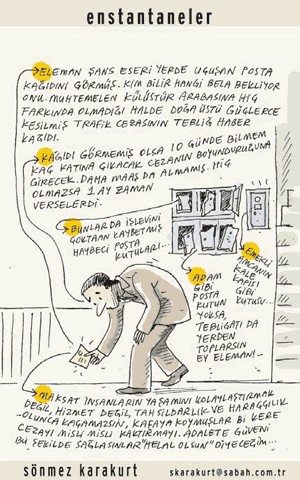 enstantaneler
ELEMAN ŞANS ESERİ YERDE UÇUŞAN POSTA
KAĞIDINI GÖRMÜŞ. KİM BİLİR HANGİ BELA BEKLİYOR
ONU. MUHTEMELEN KÜLÜSTÜR ARABASINA HİÇ
FARKINDA OLMADIĞI HALDE DOĞAÜSTÜ GÜÇLERCE
KESİLMİŞ TRAFİK CEZASININ TEBLİĞ HABER
KAĞIDI.
KAĞIDI GÖRMEMİŞ OLSA 10 GÜNDE BİLMEM
KAÇ KATINA ÇIKACAK CEZANIN BOYUNDURUĞUNA
GİRECEK. DAHA MAAŞ DA ALMAMIŞ. HİÇ
OLMAZSA 1 AY ZAMAN
VERSELERDİ.
BUNLAR DA İŞLEVİNİ
ÇOKTAAN KAYBETMİŞ
HAYBECİ POSTA
KUTULARI...
EMEKLİ
AMCANIN
KALE
KAPISI
GİBİ
KUTUSU...
ADAM
GİBİ
POSTA
KUTUN
YOKSA,
TEBLİGATI DA
YERDEN
TOPLARSIN
BY ELEMAN!..
MAKSAT İNSANLARIN YAŞAMINI KOLAYLAŞTIRMAK
DEĞİL, HİZMET DEĞİL, TAHSİLDARLIK VE HARAÇÇILIK
OLUNCA KAÇAMAZSIN, KAFAYA KOYMUŞLAR Bİ KERE
CEZAYI MİSLİ MİSLİ KAKTIRMAYI. ADALETE GÜVENİ
BU ŞEKİLDE SAĞLASINLAR "HELAL OLSUN" DİYECEĞİM...
sönmez karakurt skarakurt@sabah.com.tr